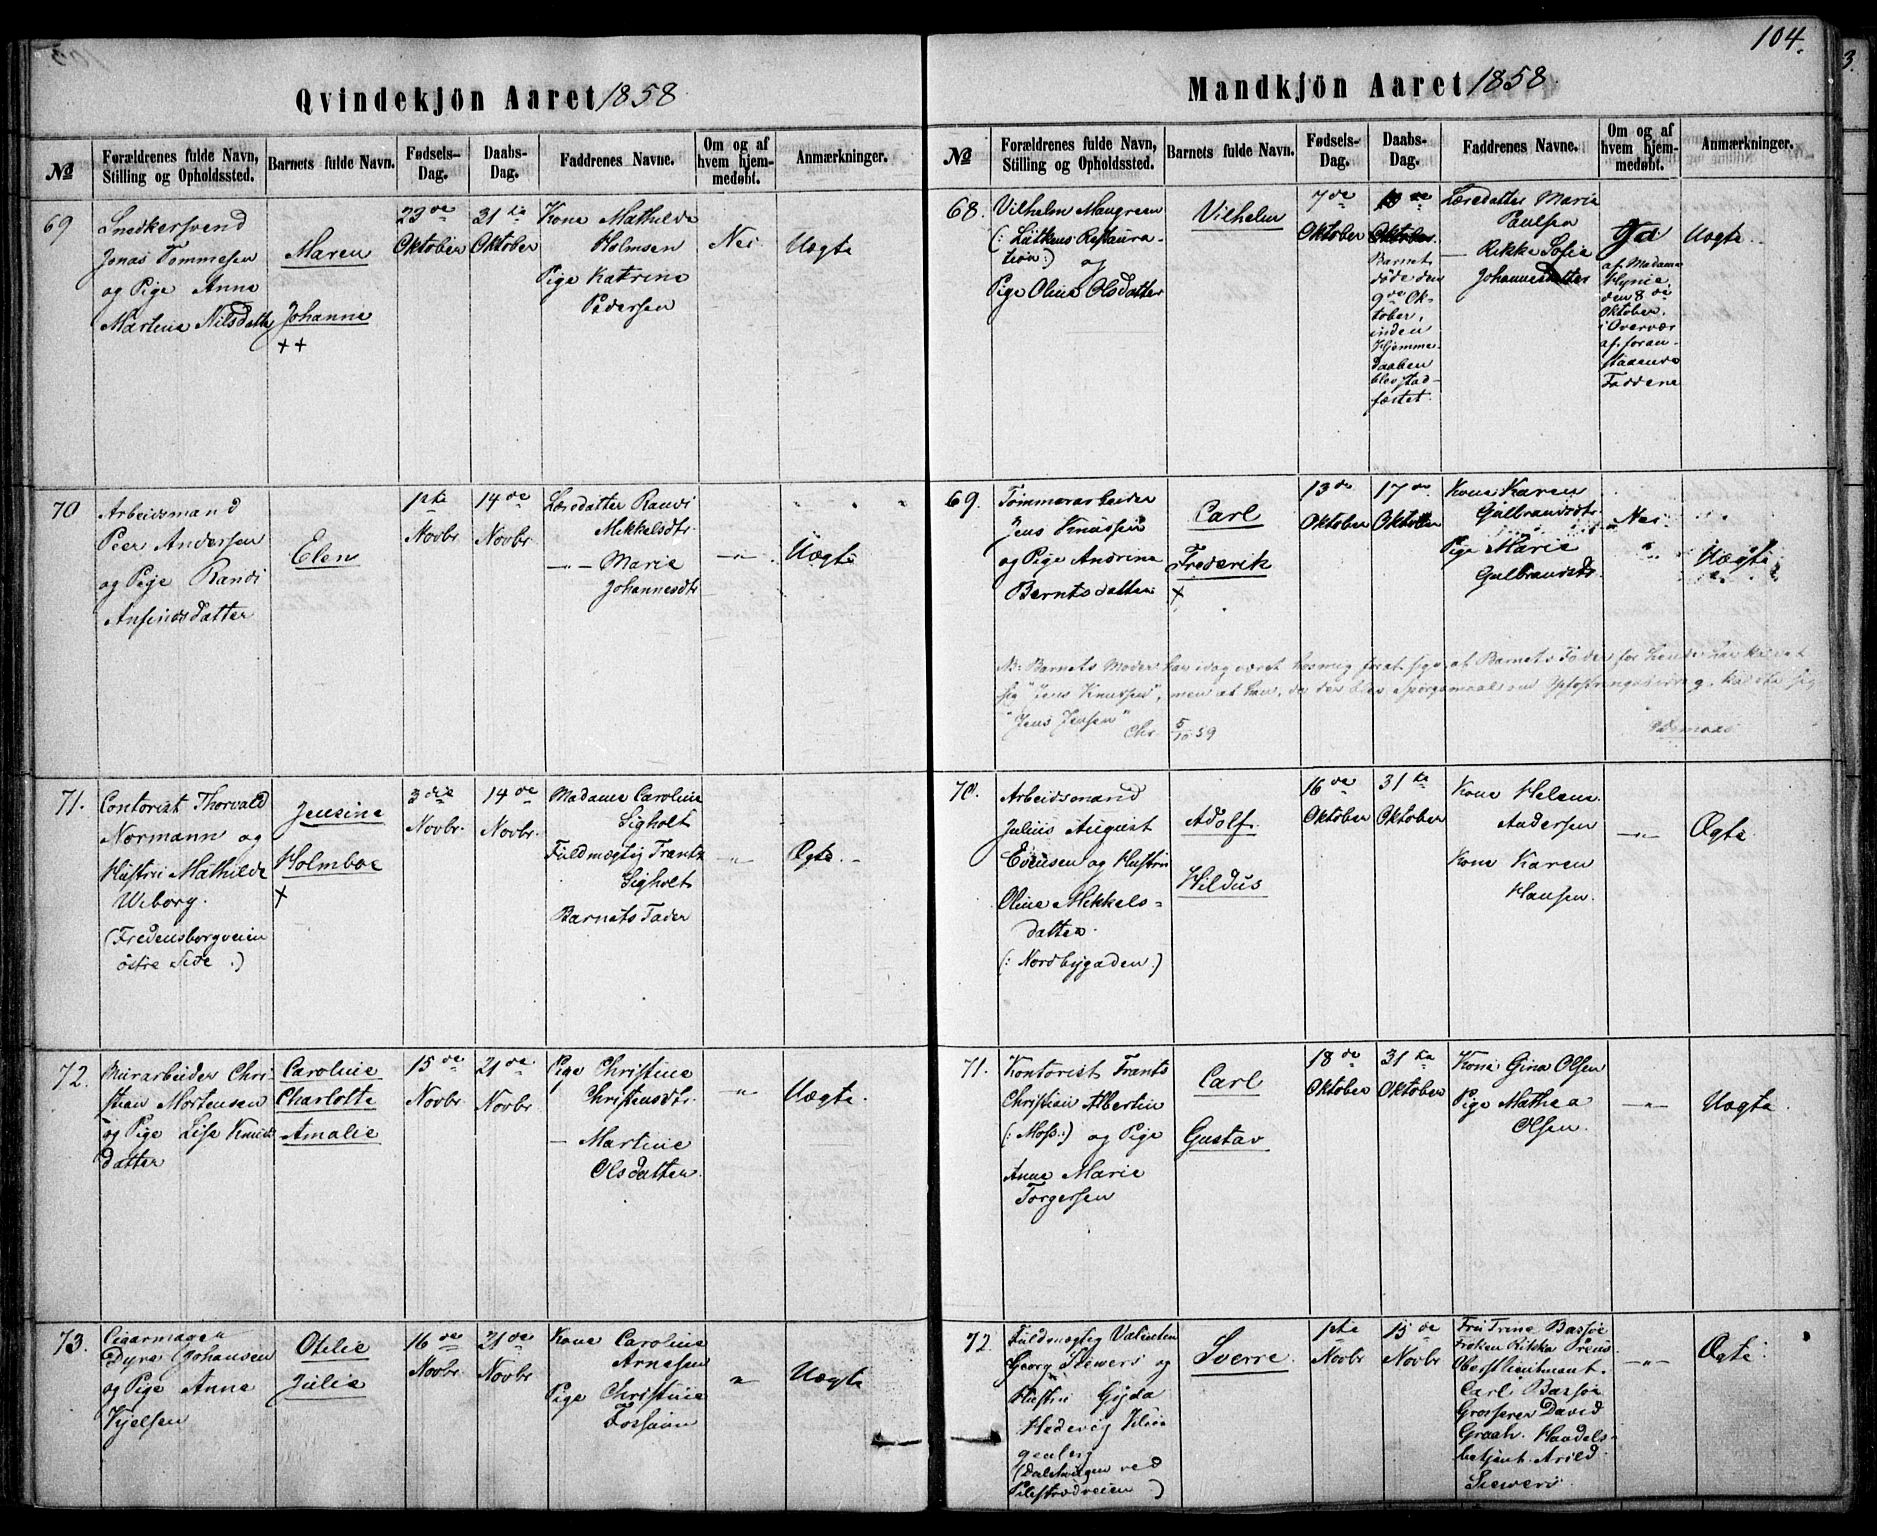 104.
Qvindekjön Aaret 1858
№
Forældrenes fulde Navn,
Stilling og Opholdssted.
Barnets fulde Navn.
Fødsels-
Dag.
Daabs-
Dag.
Faddrenes Navne.
Om og af
hvem hjem-
medøbt.
Anmærkninger.
69
Snedkersvend
Jonas Tommesen
og Pige Anne
Martine Nilsdatte
Maren
Johanne
++
23de
Oktober
31te
Oktober
Kone Mathilde
Holmsen
Pige Katrine
Pedersen
Nei
Uægte
70
Arbeidsmand
Peer Andersen
og Pige Randi
Anfinsdatter
Elen
1ste
Novbr
14de
Novbr
Læredatter Randi
Mikkelsdtr
—"— Marie
Johannesdtr
—"—
Uægte
71.
Contorist Thorvald
Normann og
Hustru Mathilde
Wiborg.
(Fredensborgveien
østre Side :)
Jensine
Holmboe
+
3die
Novbr.
14de
Novbr.
Madame Caroline
Sigholt
Fuldmægtig Frantz
Sigholt
Barnets Fader
—"—
Ægte.
72.
Murarbeider Chri-
stian Mortensen
og Pige Lise Knuds
datter
Caroline
Charlotte
Amalie
15de
Novbr
21de
Novbr
Pige Christine
Christensdtr.
— Martine
Olsdatter.
—"—
Uægte.
73.
Cigarmager
Dyre Johansen
og Pige Anne
Kjelsen
Otilie
Julie
16de
Novbr.
21de
Novbr
Kone Caroline
Arnesen
Pige Christine
Fossum
"
Uægte
Mandkjön Aaret 1858
№
Forældrenes fulde Navn,
Stilling og Opholdssted.
Barnets fulde Navn.
Fødsels-
Dag.
Daabs-
Dag.
Faddrenes Navne.
Om og af
hvem hjem-
medøbt.
Anmærkninger.
68.
Vilhelm Mangreen
(: Lütkens Restaura-
tion:) og
Pige Oline Olsdatter
Vilhelm
7de
Oktober
Oktober.
Barnet
døde den
9de Ok-
tober,
inden
Hjemme-
daaben
blev stad-
fæstet.
Læredatter Marie
Paulsen
— Rikke Sofie
Johannesdatter
Ja
af Madame
den 8de
Oktober.
i Overvær
af foran-
staaende
Faddere
Uægte.
69.
Tömmerarbeider
Jens Knudsen
og Pige Andrine
Berntsdatter.
Carl
Frederik
+
13de
Oktober
17de
Oktober
Kone Karen
Gulbrandsdtr
Pige Marie
Gulbrandsdtr.
Nei
Uægte
NB: Barnets Moder har idag været hosmig forat sige, at Barnets Fader for hende har kaldet
sig "Jens Knudsen", men at han, da der blev Spørgsmaal om Opfostringsbidrag, kaldte sig
"Jens Jensen" Chr. 5/10 59
70.
Arbeidsmand
Julius August
Evensen og Hustru
Oline Mikkels-
datter.
(: Nordbygaden.)
Adolf
Hildus
16de
Oktober
31te
Oktober
Kone Helene
Andersen
Kone Karen
Hansen.
—"—
Ægte
71.
Kontorist Frants
Christian Albertin
(: Moss:) og Pige
Anne Marie
Torgersen
Carl
Gustav
18de
Oktober
31te
Oktober
Kone Gina Olsen
Pige Mathea
Olsen.
—"—
Uægte.
72.
Fuldmægtig Valentin
Georg Siewers og
Hustru Gyda
Hedevig
(Dalsbergen ved
Pilestrædveien :)
Sverre.
1ste
Novbr
15de
Novbr
Fru Trine Bassøe
Frøken Rikka Preus
Oberstlieutnant
Carl Bassøe
Grosserer David
Graah. Handels-
betjent Arild
Siewers.
—"—
Ægte.